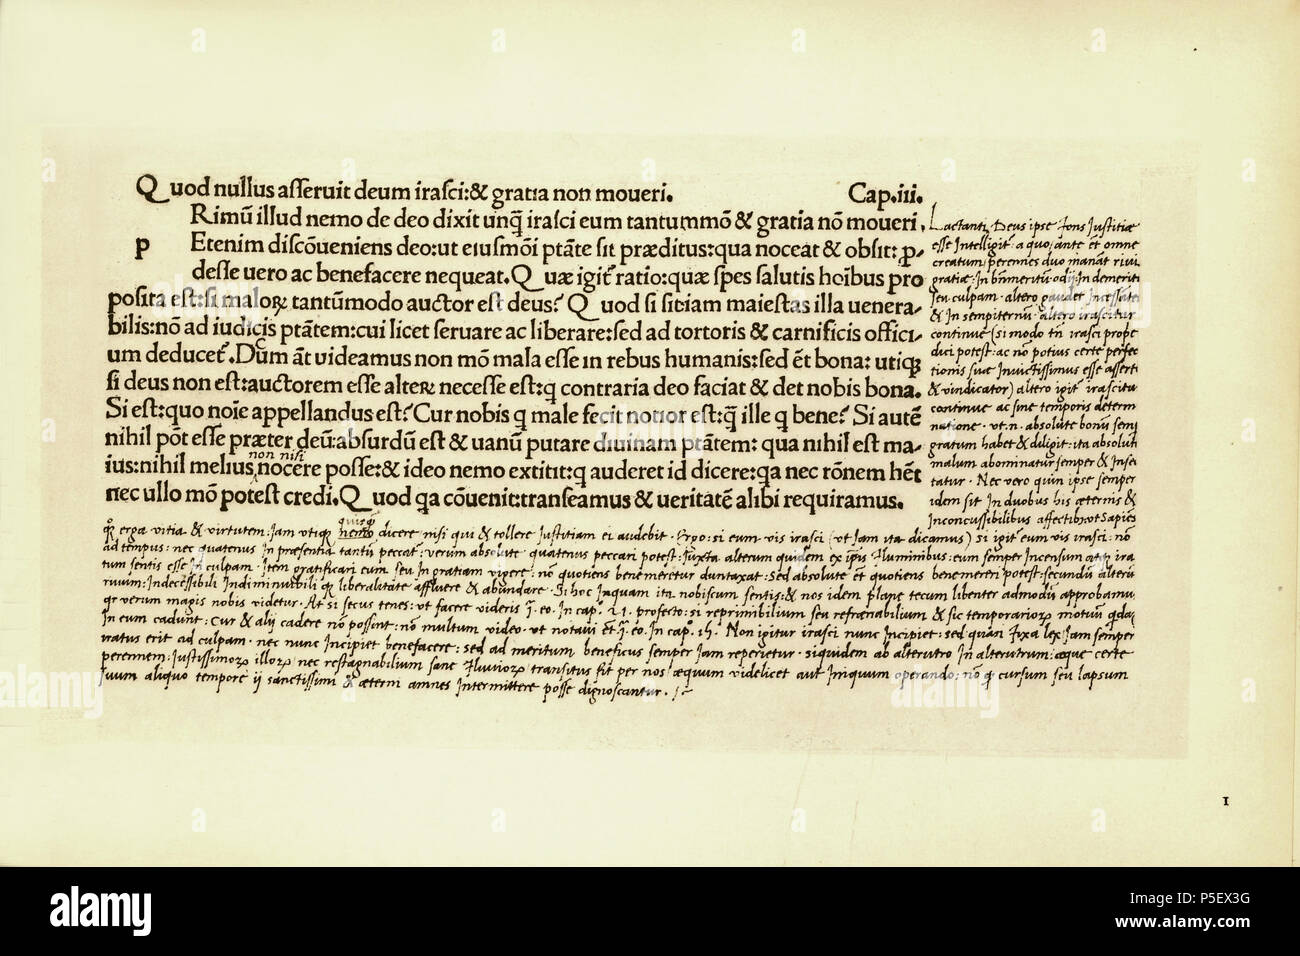 Quod nullus asseruit deum irasci:& gratia non moueri. Cap.iii.
Rimũ illud nemo de deo dixit unq̃ irasci eum tantummõ & gratia nõ moueri.
p Etenim discõueniens deo:ut eiusmõi ptãte sit præditus:qua noceat & obsit:ꝓ
desse uero ac benefacere nequeat. Quæ igit᷑ ratio:quæ spes salutis hoĩbus pro
posita est:si maloꝝ tantũmodo auctor est deus? Quod si sit:iam maiestas illa uenera⸗
bilis:nõ ad iudicis ptãtem:cui licet seruare ac liberare:sed ad tortoris & carnificis offici⸗
um deducet᷑. Dum ãt uideamus non mõ mala esse in rebus humanis:sed ẽt bona: utiq̃
si deus non est:auctorem esse alteꝝ necesse est:q contraria deo faciat & det nobis bona.
Si est:quo noĩe appellandus est? Cur nobis q male fecit notior est:q̃ ille q bene? Si autẽ
nihil põt esse præter deũ:absurdũ est & uanũ putare diuinam ptãtem: qua nihil est ma⸗
non nisi
ius:nihil melius nocere posse:& ideo nemo extitit:q auderet id dicere:qa nec rõnem hẽt
nec ullo mõ potest credi. Quod qa cõuenit:transeamus & ueritatẽ alibi requiramus.
Lactanti, Deus ipse fons Justitiæ
esse Intelligit᷑ · a quo ante et omne
creatum perennes duo manant rivi
gratiæ · In bñmeritũ · odij In demeriti
seu culpam · altero gaudet Incessãter
& In sempiternũ · altero irascitur
continue (si modo tñ irasci prope
dici potest: ac nõ potius certe perfec
tionis sive Invictissimus esse asserti
& vindicator) altero igit᷑ irascitu
continue ac sine temporis determ
natione · vt.n. absolute bonũ semp
gratum habet & diligit: ita absoluti
malum abominatur semper & Insec
tatur · Nec vero quin ipse semper
idem sit In duobus his æternis &
Inconcussibilibus affectib: vt Sapiẽs
quisq̃
erga vitia & virtutem: Jam vtiq̃ nemo dicere nisi qui & tollere Justitiam ei audebit · Ergo: si eum vis irasci (vt Jam ita dicamus) si igit᷑ eum vis irasci: nõ
ad tempus: nec quatenus In præsentia tantũ peccat᷑: verum absolute quatenus peccari potest: Juxta alterum quidem ex ipĩs fluminibus: eum semper Incensum ira
tum sentis esse In culpam · Item gratificari eum seu In gratiam vigere: nõ quotiens benemeretur duntaxat: Sed absolute et quotiens benemereri potest: secundũ alterũ
rivum: Indecessibili Indiminubili liberalitate affluere & abundare · Si hoc Inquam ita nobiscum sentis: & nos idem plane tecum libenter admodũ approbamu
verum magis nobis videtur · At si secus tenes: vt facere videris In cap. 21. profecto: si reprimibilium seu refrenabilium & sic temporarioꝝ motuũ qda
In eum cadunt: Cur & alij cadere nõ possent: nõ multum video · vt notavi In cap. 15. Non igitur irasci nunc Incipiet: sed quasi fixa lex Jam semper
iratus erit ad culpam · nec nunc Incipiet benefacere: sed ad meritum beneficus semper Jam reperietur · siquidem ab alterutro In alterutrum: æque certe
perennem: Justissimoꝝ illoꝝ nec restagnabilium sane fluvioꝝ transitus fit per nos æquum videlicet aut Iniquum operando: nõ cursum seu lapsum
suum aliquo tempore ij sanctissimi & æterni amnes Intermittere posse dignoscantur.
1
alamy
Image ID: P5EX3G
www.alamy.com